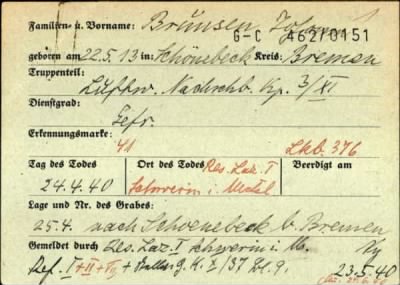 Familien- u. Vorname: Brünsen, Joh
G-C 462/0151
geboren am 22.5.13 in: Schönebeck Kreis: Bremen
Truppenteil:
Luftw. Nachsch. Kp. 3/XI
Dienstgrad:
Gefr.
Erkennungsmarke:
41 Lkb. 376
Tag des Todes Ort des Todes Res. Laz. I Beerdigt am
24.4.40 Schwerin i. Meckl
Lage und Nr. des Grabes:
25.4. nach Schoenebeck b. Bremen
Gemeldet durch Res. Laz. I Schwerin i. M.
Ref. I + II + + g. K. X/37 Bl. 9. 23.5.40